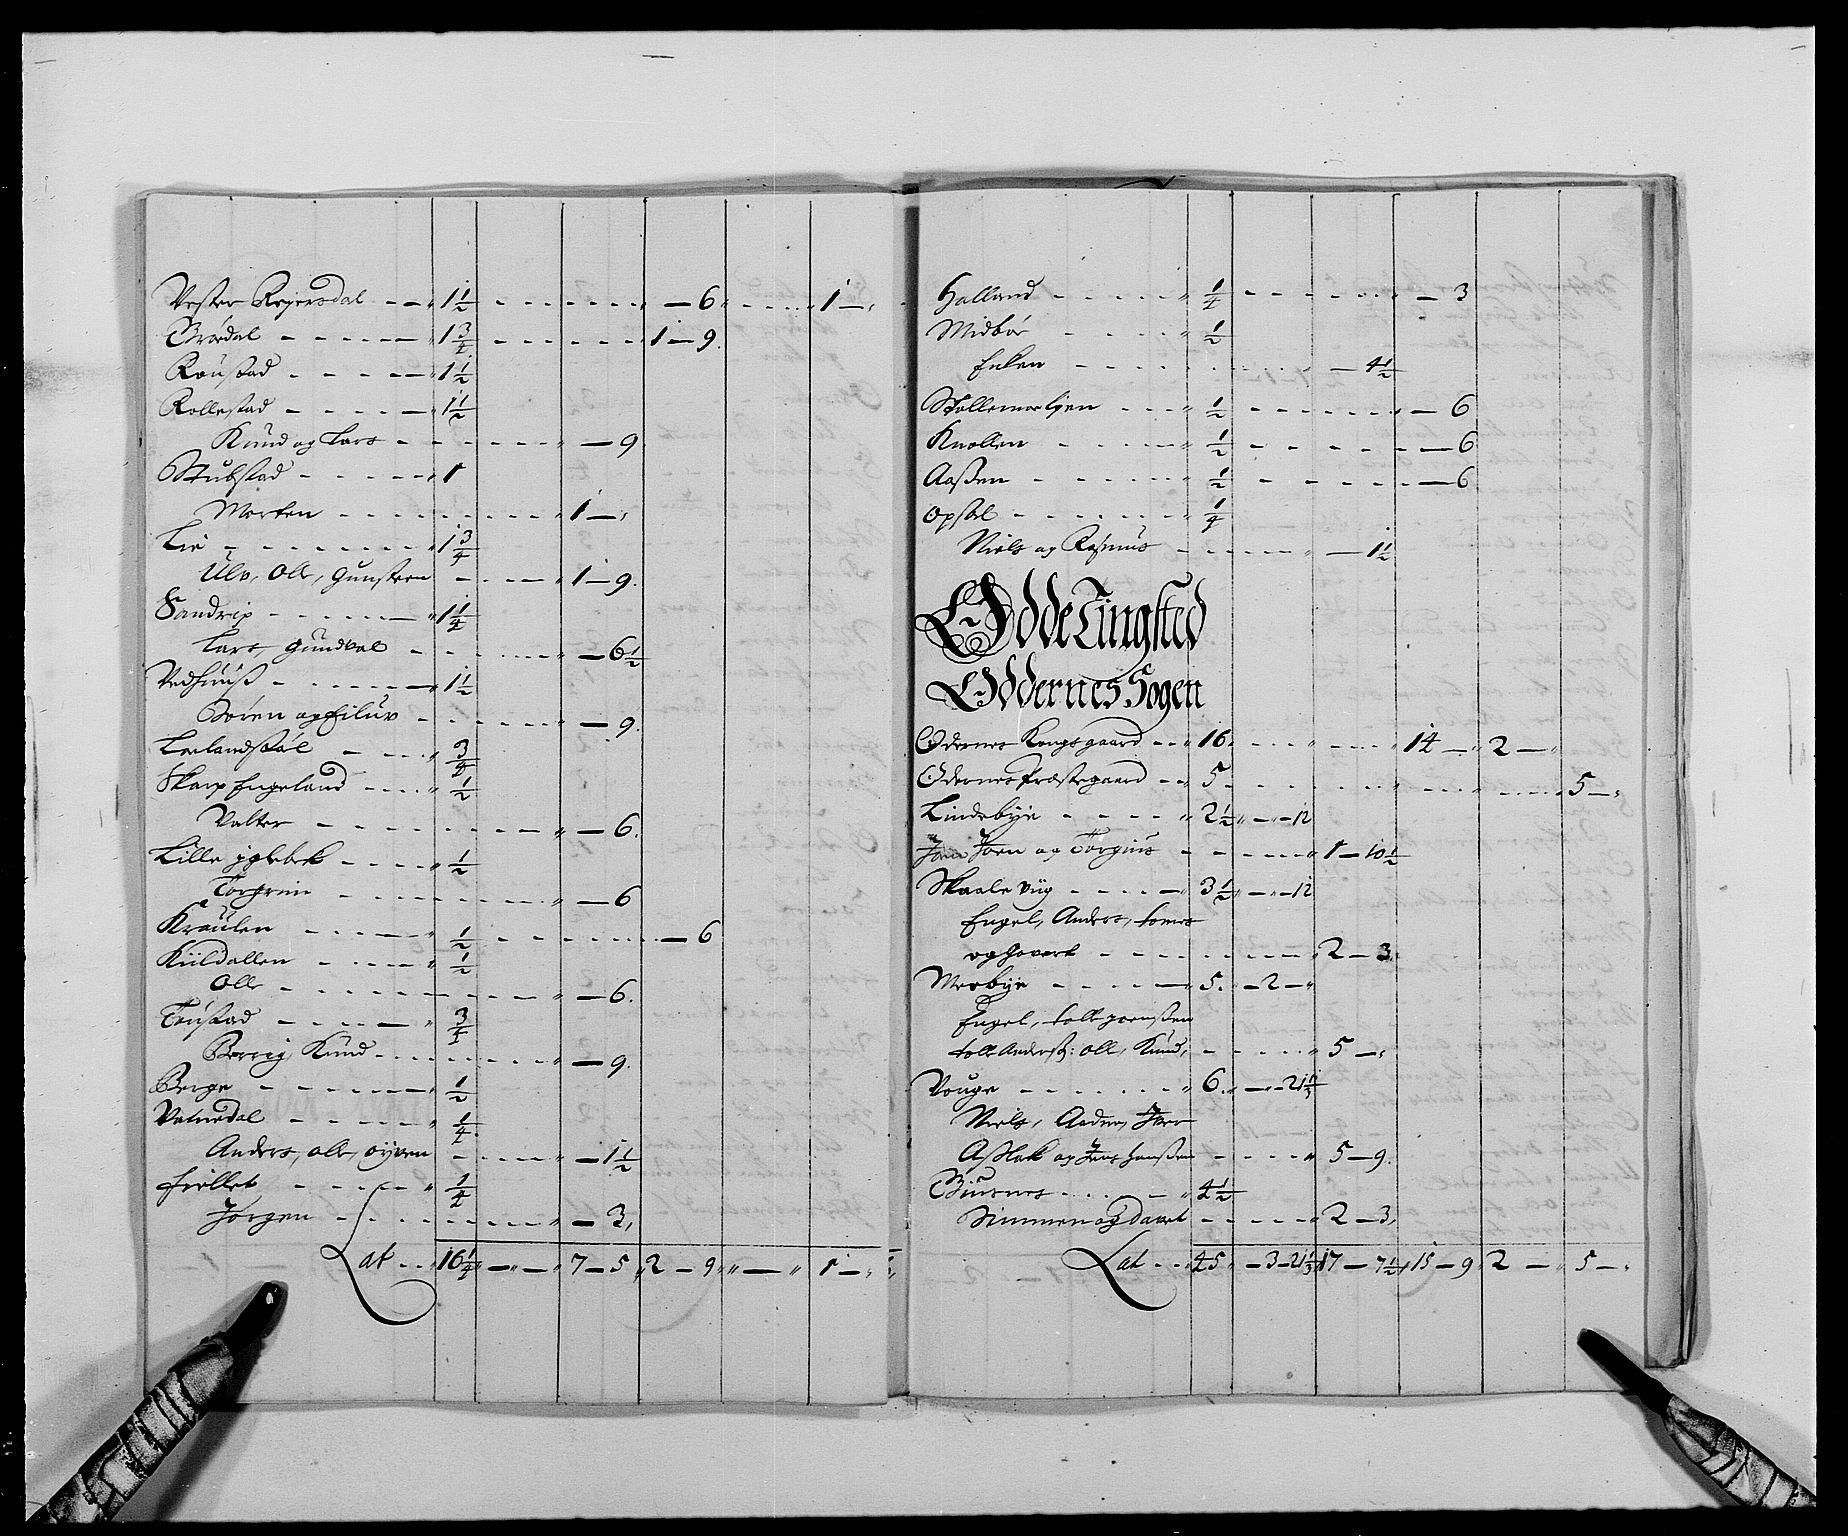 Vester Reiersdal - - 1 1/2 - - - - - - - 6 - - - - 1 - "
Brødal - - - - - - 1 3/4 - - - - - - 1 - 9.
Røustad - - - - - 1 1/2
Rollestad - - - - 1 1/2
Knud og Lars - - - - - - " - 9
Stubstad - - - - - 1
Morten - - - - - - - " 1 - "
Lie - - - - - - - - 1 3/4
Ulv, Olle, Gunsteen - - - " 1 - 9.
Sandrip - - - - - - 1 1/4
Lars, Gundval - - - - - " - 6 1/2
Vedhuuß - - - - - - 1 1/2
Søren og Eiluv - - - - - " - 9.
Lielandstøl - - - " 3/4
Skarp Engeland - - - " 1/2
Valter - - - - - - - " - 6.
Lille iglebek - - - - " 1/2
Torgrim - - - - - - - " - 6
Kraulen - - - - - 1/2 - - - - - - - 6
Kiildallen - - - - - " 1/2
Olle - - - - - - - - " - 6.
Toustad - - - - - " 3/4
Berrig, Knud - - - - - - " - 9.
Berge - - - - - - " 1/2
Vatnedal - - - - - " 1/4
Anders, Olle, Øyven - - - - " - 1 1/2
Fiellet - - - - - " 1/4
Jørgen - - - - - - - " - 3,
Lat - - 16 1/4 " - " - 7 - 5 " 2 - 9 " " - " 1 - "
Holland - - - - - " 1/4 - - - - - - - 3
Midbøe - - - - - " 1/2
Enken - - - - - - - - - 4 1/2
Stallemoelyen - - - " 1/2 - - - - - - " - 6
Knollen - - - - - " 1/2 - - - - - - - 6
Aaßen - - - - - - " 1/2 - - - - - - - 6
Opsal - - - - - - " 1/4
Niels og Rasmus - - - - - " - 1 1/2
Odde Tingsted
Oddernes Sogen
Odernes Kongsgaard - - 16. - - - - " - - - " 14 - " 2 - "
Odernes Præstegaard - - " 5 - - - - - - - - - - - - - 5 - "
Lindebye - - - - - " 2 1/2 " - " - 12
Joen og Torgius - - - - - - " 1 - 10 1/2
Skaalevüg - - - - - " 3 1/2 " - " - 12
Engel, Anders, Tomes
og Govert - - - - - - - - 2 - 3.
Mosbye - - - - - - 5. - 2 - "
Engel, Tolle Joenßen
Tolle Anderß: Olle, Knud, - - - - - " 5 - "
Vouge - - - - - - - " 6. " - " - 21 1/3
Niels, Aaden, Iver
Asslak og Jens Hanßen - - - - " 5 - 9.
Giusnes - - - - - " 4 1/2
Simmen og Davet - - - - - " 2 - 3,
Lat - - 45 " - 3 - 21 1/3 17 - 7 1/2 15 - 9 2 - " 5 - "